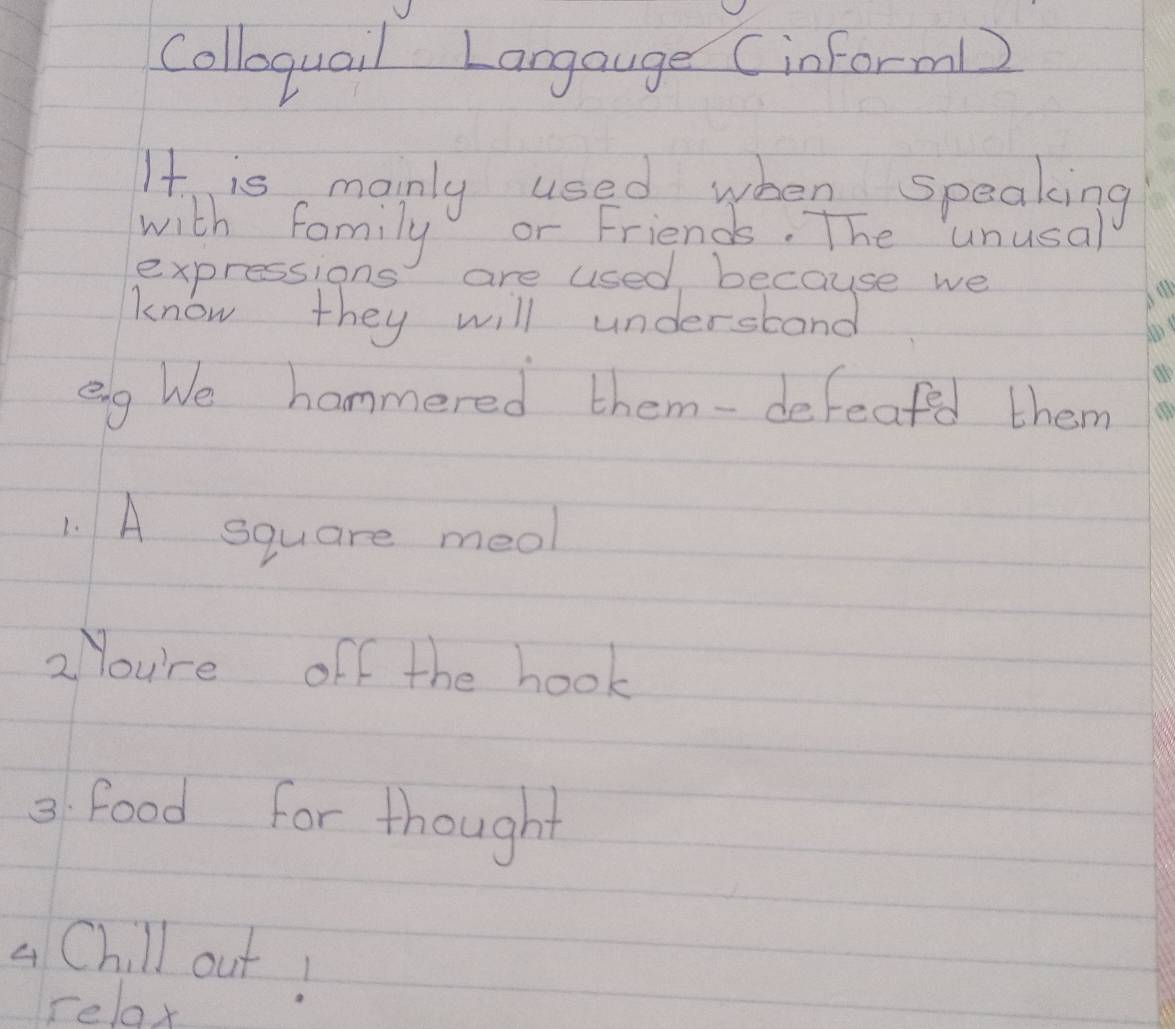 Colloquail Langauge (informl)
It is mainly used when speaking
with family or Friends. The unusal
expressions are used because we
know they will understand
e.g We hammered them - defeated them
1. A square meal
2 You're off the hook
3. Food for thought
4 Chill out !
relax